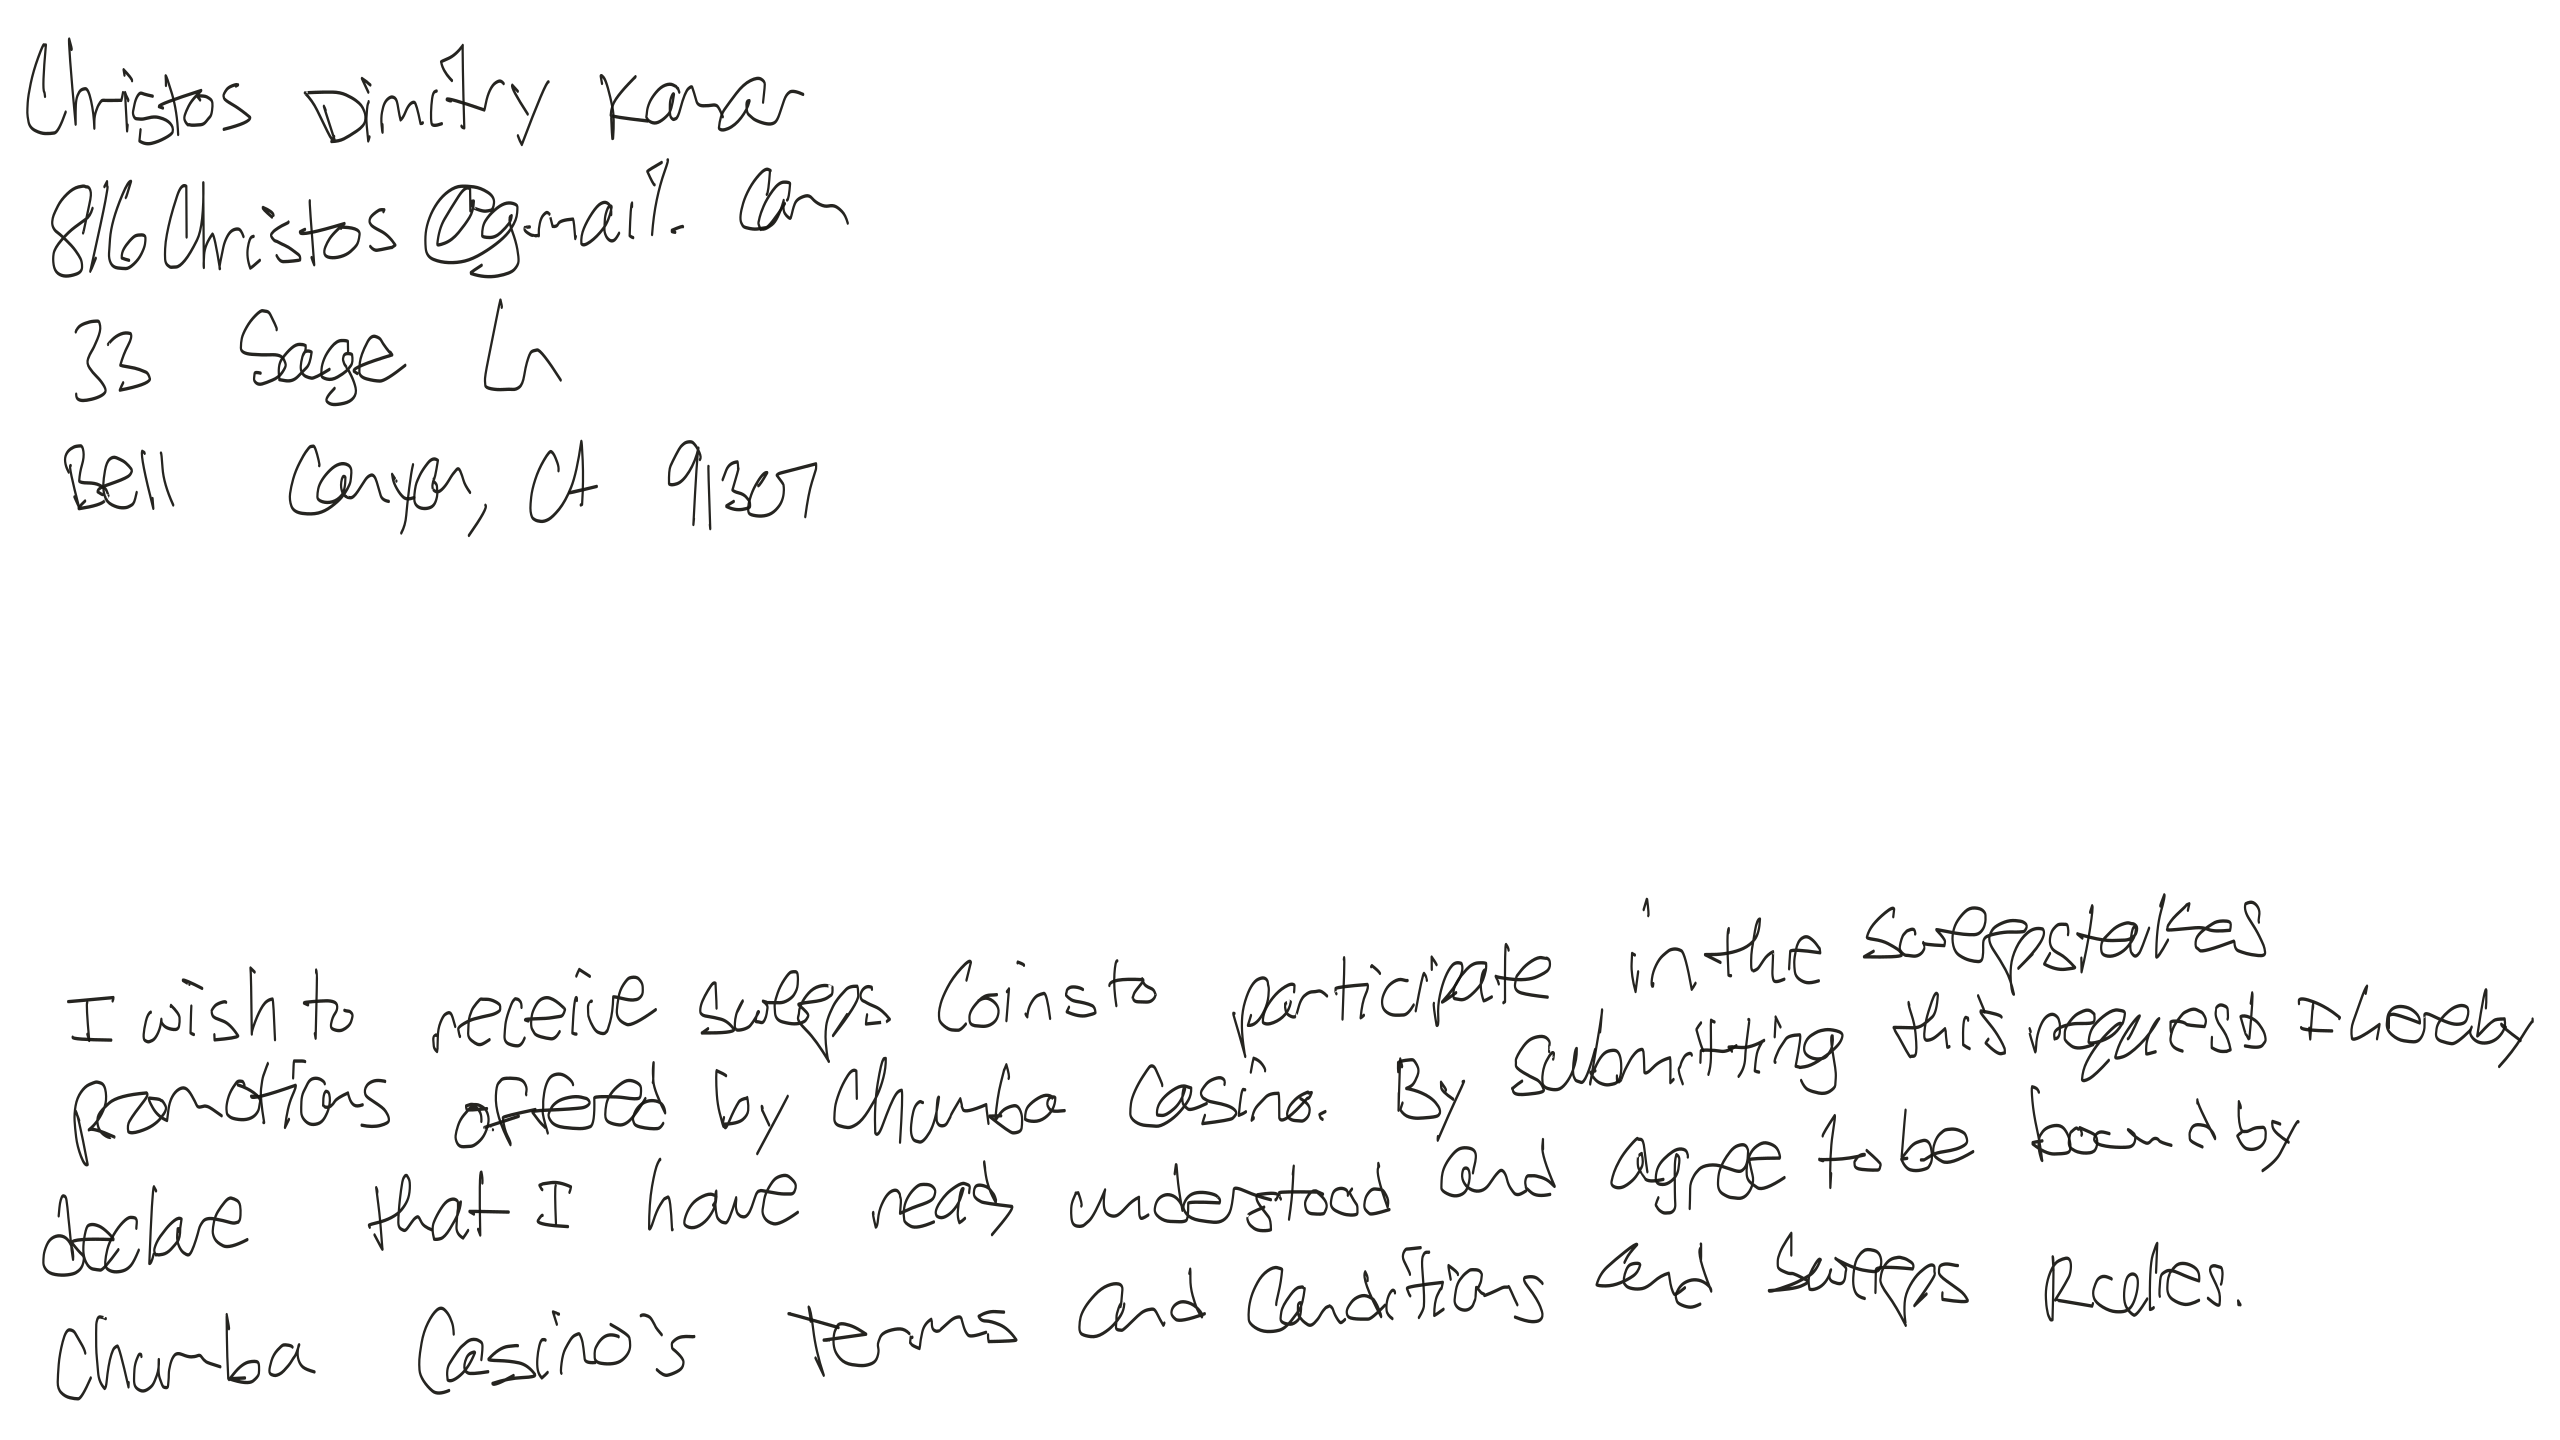 Christos Dimitry Kanar
816Christos@gmail.com
33 Sage Ln
Bell Canyon, CA 91307
I wish to receive sweeps Coins to participate in the sweepstakes
promotions offered by Chumba Casino. By submitting this request I hereby
declare that I have read, understood and agree to be bound by
Chumba Casino's terms and Conditions and Sweeps Rules.